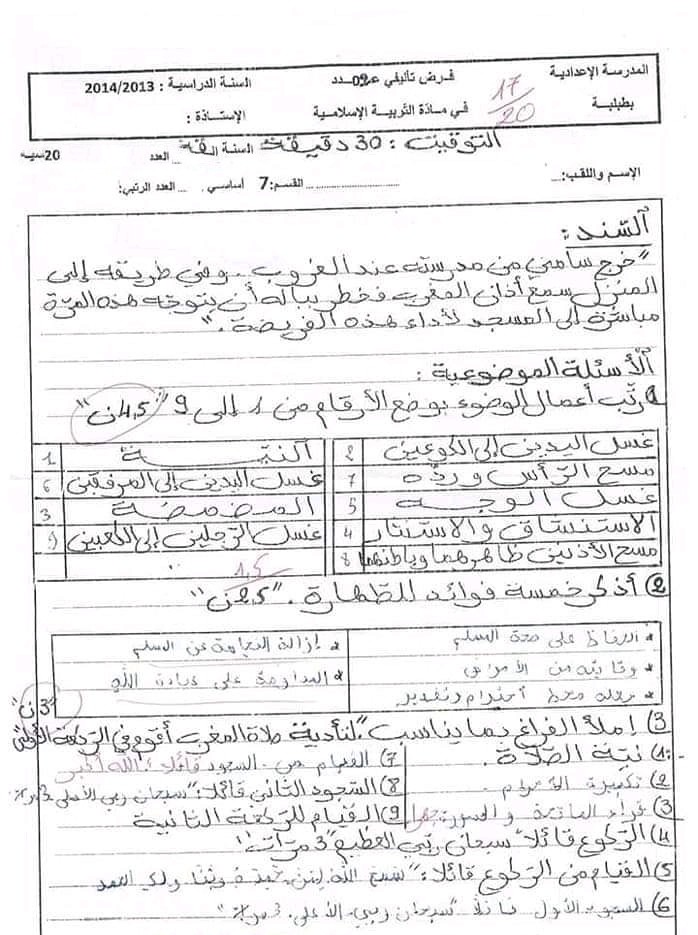 المدرسة الإعدادية
بطبلبة
17/20
فرض تأليفي عدد 02
في مادة التربية الإسلامية
السنة الدراسية : 2014/2013
الإستاذة :
التوقيت : 30 دقيقة
العدد
الإسم واللقب:...
القسم: 7 أساسي
العدد الرتبي:
السند :
"خرج سامي من مدرسته عند الغروب . وفي طريقه إلى
المنزل سمع أذان المغرب فخطر بباله أن يتوجه هذه المرة
مباشرة إلى المسجد لأداء هذه الفريضة ."
الأسئلة الموضوعية :
1 رتّب أعمال الوضوء بوضع الأرقام من 1 إلى 9 "4,5ن"
غسل اليدين إلى الكوعين 2 النيّة 1
مسح الرّأس وردّه 7 غسل اليدين إلى المرفقين 6
غسل الوجه 5 المضمضة 3
الاستنشاق والاستنثار 4 غسل الرّجلين إلى الكعبين 9
مسح الأذنين ظاهرهما وباطنهما 8
1,5
2) أذكر خمسة فوائد للطّهارة . "2,5ن"
* الحفاظ على صحة المسلم * إزالة النجاسة عن المسلم
* وقايته من الأمراض * المداومة على عبادة الله
* يجعله محط احترام وتقدير
"3ن"
3) إملأ الفراغ بما يناسب "لتأدية صلاة المغرب أقوم في الرّكعة الأولى"
1) نيّة الصّلاة . 7) القيام من السجود قائلا : الله أكبر
2) تكبيرة الإحرام . 8) السّجود الثاني قائلا : "سبحان ربي الأعلى 3 مرات
3) قراءة الفاتحة والسورة جهرا 9) القيام للرّكعة الثانية
4) الرّكوع قائلا "سبحان ربي العظيم" 3 مرّات"
5) القيام من الرّكوع قائلا : "سمع الله لمن حمده ربنا ولك الحمد
6) السجود الأول قائلا "سبحان ربي الأعلى 3 مرات"